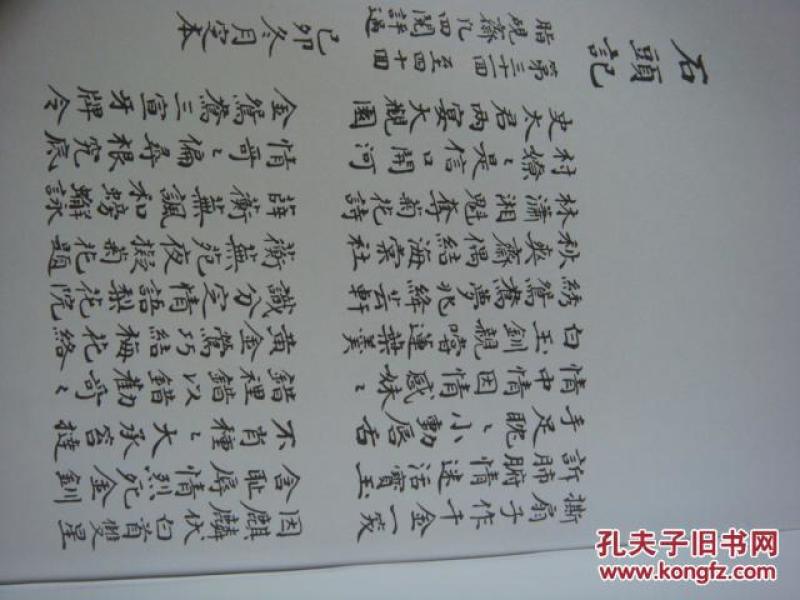 撕扇子作千金一笑
因麒麟伏白首雙星
訴肺腑情迷活寶玉
含耻辱情烈死金釧
手足眈〻小動唇舌
不肖種〻大承笞撻
情中情因情感妹〻
錯裡錯以錯勸哥〻
白玉釧親嚐蓮葉羹
黃金鶯巧結梅花絡
綉鴛鴦夢兆絳芸軒
識分定情語梨花院
秋爽齋偶結海棠社
蘅蕪苑夜擬菊花題
林瀟湘魁奪菊花詩
薛蘅蕪諷和螃蟹詠
村嫽〻是信口開河
情哥〻偏尋根究底
史太君两宴大觀園
金鴛鴦三宣牙牌令
第三十一回至四十回
脂硯齋凡四閱評過
己卯冬月定本
石頭記
孔夫子旧书网
www.kongfz.com